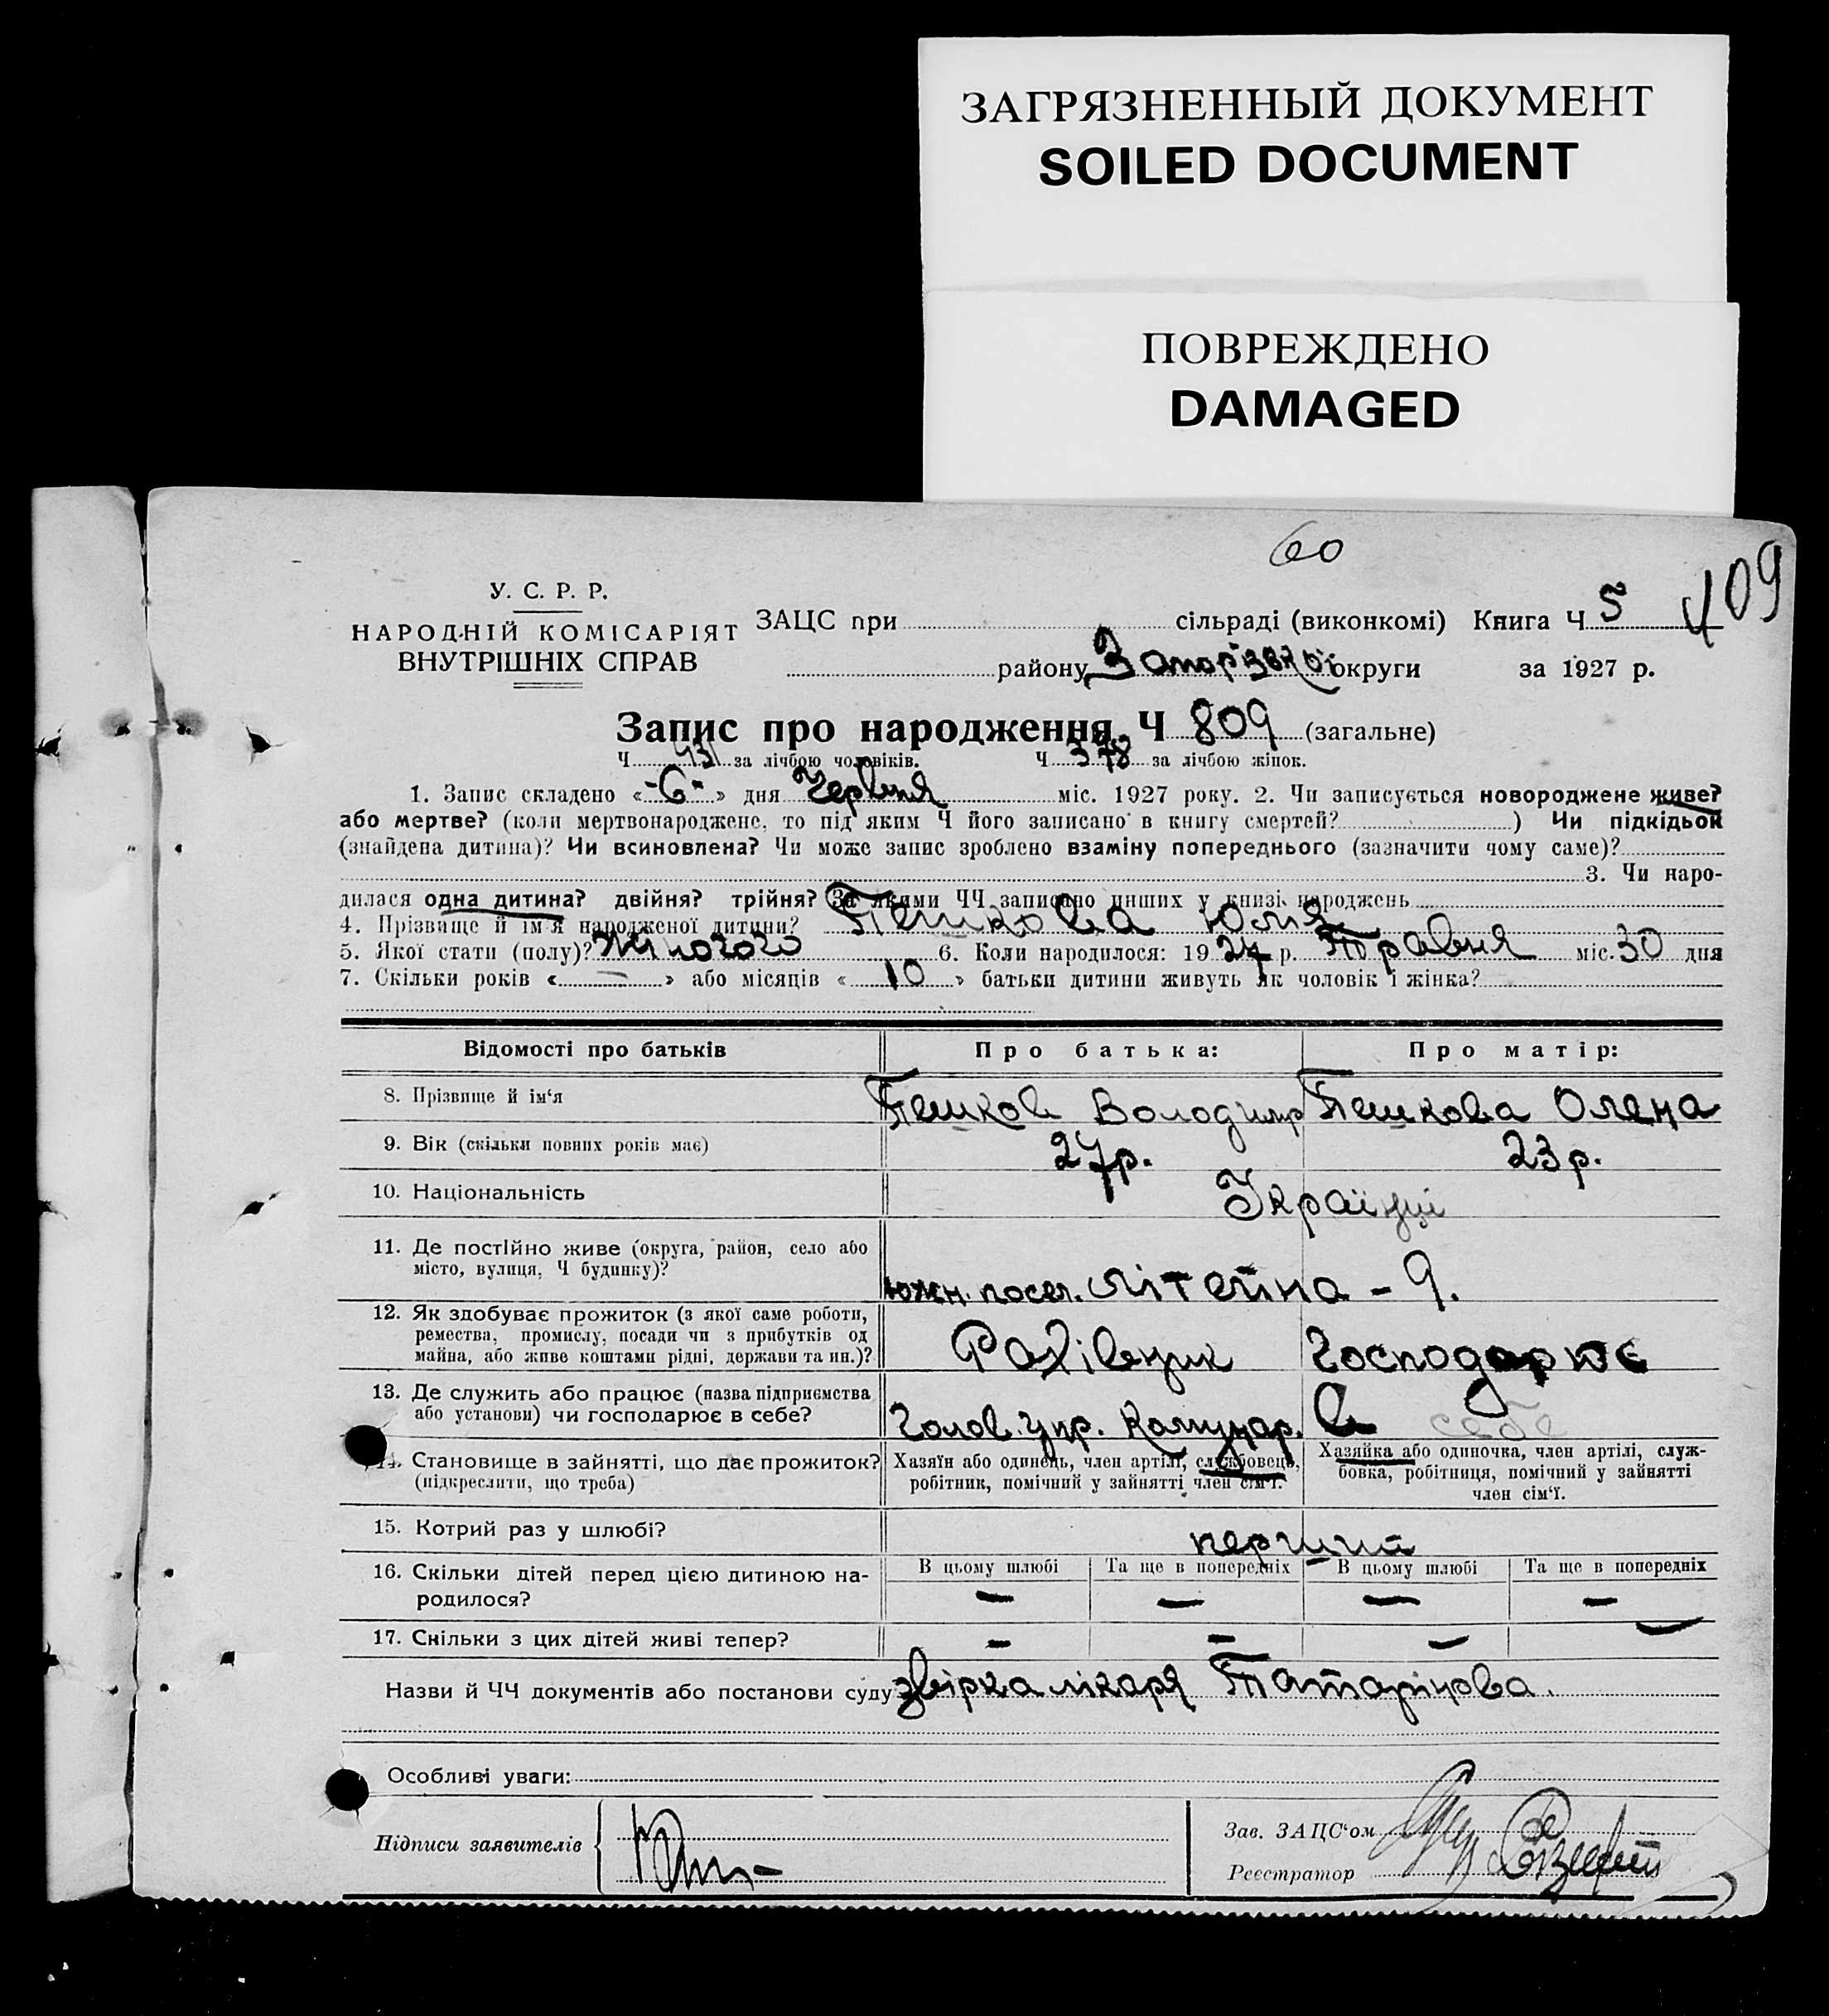 ЗАГРЯЗНЕННЫЙ ДОКУМЕНТ
SOILED DOCUMENT
ПОВРЕЖДЕНО
DAMAGED
60
409
У. С. Р. Р.
НАРОДНІЙ КОМІСАРІЯТ
ВНУТРІШНІХ СПРАВ
ЗАЦС при сільраді (виконкомі) Книга Ч 5
району Запорізької округи за 1927 р.
Запис про народження Ч 809 (загальне)
Ч 431 за лічбою чоловіків. Ч 378 за лічбою жінок.
1. Запис складено «6» дня Червня міс. 1927 року. 2. Чи записується новороджене живе?
або мертве? (коли мертвонароджене, то під яким Ч його записано в книгу смертей? ) Чи підкідьок
(знайдена дитина)? Чи всиновлена? Чи може запис зроблено взаміну попереднього (зазначити чому саме)?
3. Чи наро-
дилася одна дитина? двійня? трійня? За якими ЧЧ записано инших у книзі народжень
4. Прізвище й ім'я народженої дитини? Пешкова Юлія
5. Якої стати (полу)? Жіночого 6. Коли народилося: 1927 р. Травня міс. 30 дня
7. Скільки років « — » або місяців « 10 » батьки дитини живуть як чоловік і жінка?
Відомості про батьків Про батька: Про матір:
8. Прізвище й ім'я Пешков Володимир Пешкова Олена
9. Вік (скільки повних років має) 27 р. 23 р.
10. Національність Українці
11. Де постійно живе (округа, район, село або
місто, вулиця, Ч будинку)? Южн. посел. Літейна - 9.
12. Як здобуває прожиток (з якої саме роботи,
ремества, промислу, посади чи з прибутків од
майна, або живе коштами рідні, держави та ин.)? Рахівник Господарює
13. Де служить або працює (назва підприємства
або установи) чи господарює в себе? Голов. упр. Комунар. в себе
14. Становище в зайнятті, що дає прожиток?
(підкреслити, що треба)
Хазяїн або одинець, член артілі, службовець,
робітник, помічний у зайнятті член сім'ї.
Хазяйка або одиночка, член артілі, служ-
бовка, робітниця, помічний у зайнятті
член сім'ї.
15. Котрий раз у шлюбі? перший
16. Скільки дітей перед цією дитиною на-
родилося?
В цьому шлюбі Та ще в попередніх В цьому шлюбі Та ще в попередніх
— — — —
17. Скільки з цих дітей живі тепер? — — — —
Назви й ЧЧ документів або постанови суду звірка лікаря Татарінова.
Особливі уваги:
Підписи заявителів
Зав. ЗАЦС'ом
Реєстратор